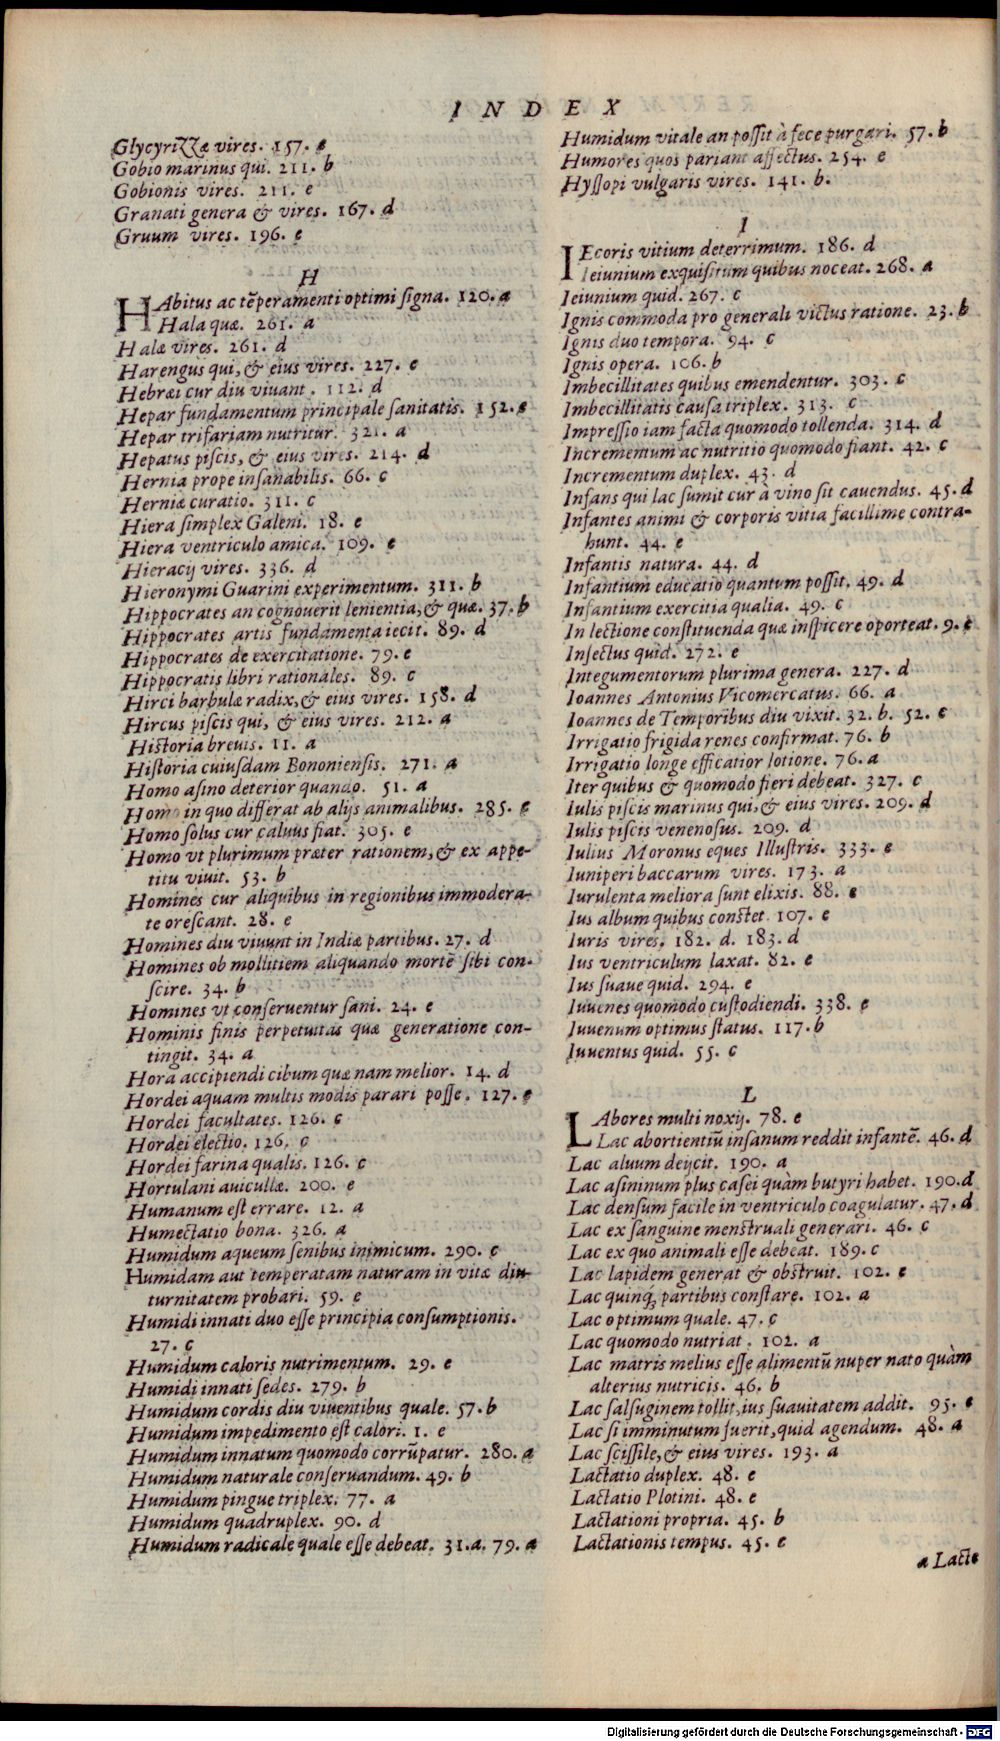 INDEX
Glycyrizzæ vires. 157. e
Gobio marinus qui. 211. b
Gobionis vires. 211. e
Granati genera & vires. 167. d
Gruum vires. 196. e
H
HAbitus ac tēperamenti optimi signa. 120. a
Hala quæ. 261. a
Halæ vires. 261. d
Harengus qui, & eius vires. 227. e
Hebræi cur diu viuant. 112. d
Hepar fundamentum principale sanitatis. 152. e
Hepar trifariam nutritur. 321. a
Hepatus piscis, & eius vires. 214. d
Hernia prope insanabilis. 66. c
Herniæ curatio. 311. c
Hiera simplex Galeni. 18. e
Hiera ventriculo amica. 109. e
Hieracij vires. 336. d
Hieronymi Guarini experimentum. 311. b
Hippocrates an cognouerit lenientia, & quæ. 37. b
Hippocrates artis fundamenta iecit. 89. d
Hippocrates de exercitatione. 79. e
Hippocratis libri rationales. 89. c
Hirci barbulæ radix, & eius vires. 158. d
Hircus piscis qui, & eius vires. 212. a
Historia breuis. 11. a
Historia cuiusdam Bononiensis. 271. a
Homo asino deterior quando. 51. a
Homo in quo differat ab alijs animalibus. 285. e
Homo solus cur caluus fiat. 305. e
Homo vt plurimum præter rationem, & ex appe-
titu viuit. 53. b
Homines cur aliquibus in regionibus immodera-
te crescant. 28. e
Homines diu viuunt in Indiæ partibus. 27. d
Homines ob mollitiem aliquando mortē sibi con-
scire. 34. b
Homines vt conseruentur sani. 24. e
Hominis finis perpetuitas quæ generatione con-
tingit. 34. a
Hora accipiendi cibum quæ nam melior. 14. d
Hordei aquam multis modis parari posse. 127. e
Hordei facultates. 126. c
Hordei electio. 126. c
Hordei farina qualis. 126. c
Hortulani auicullæ. 200. e
Humanum est errare. 12. a
Humectatio bona. 326. a
Humidum aqueum senibus inimicum. 290. c
Humidam aut temperatam naturam in vitæ diu-
turnitatem probari. 59. e
Humidi innati duo esse principia consumptionis.
27. c
Humidum caloris nutrimentum. 29. e
Humidi innati sedes. 279. b
Humidum cordis diu viuentibus quale. 57. b
Humidum impedimento est calori. 1. e
Humidum innatum quomodo corrūpatur. 280. a
Humidum naturale conseruandum. 49. b
Humidum pingue triplex. 77. a
Humidum quadruplex. 90. d
Humidum radicale quale esse debeat. 31. a. 79. a
Humidum vitale an possit à fece purgari. 57. b
Humores quos pariant affectus. 254. e
Hyssopi vulgaris vires. 141. b.
I
IEcoris vitium deterrimum. 186. d
Ieiunium exquisitum quibus noceat. 268. a
Ieiunium quid. 267. c
Ignis commoda pro generali victus ratione. 23. b
Ignis duo tempora. 94. c
Ignis opera. 106. b
Imbecillitates quibus emendentur. 303. c
Imbecillitatis causa triplex. 313. c
Impressio iam facta quomodo tollenda. 314. d
Incrementum ac nutritio quomodo fiant. 42. c
Incrementum duplex. 43. d
Infans qui lac sumit cur à vino sit cauendus. 45. d
Infantes animi & corporis vitia facillime contra-
hunt. 44. e
Infantis natura. 44. d
Infantium educatio quantum possit. 49. d
Infantium exercitia qualia. 49. c
In lectione constituenda quæ inspicere oporteat. 9. e
Insectus quid. 272. e
Integumentorum plurima genera. 227. d
Ioannes Antonius Vicomercatus. 66. a
Ioannes de Temporibus diu vixit. 32. b. 52. c
Irrigatio frigida renes confirmat. 76. b
Irrigatio longe efficatior lotione. 76. a
Iter quibus & quomodo fieri debeat. 327. c
Iulis piscis marinus qui, & eius vires. 209. d
Iulis piscis venenosus. 209. d
Iulius Moronus eques Illustris. 333. e
Iuniperi baccarum vires. 173. a
Iurulenta meliora sunt elixis. 88. e
Ius album quibus constet. 107. e
Iuris vires. 182. d. 183. d
Ius ventriculum laxat. 82. e
Ius suaue quid. 294. e
Iuuenes quomodo custodiendi. 338. e
Iuuenum optimus status. 117. b
Iuuentus quid. 55. c
L
LAbores multi noxij. 78. e
Lac abortientiū insanum reddit infantē. 46. d
Lac aluum deijcit. 190. a
Lac asininum plus casei quàm butyri habet. 190. d
Lac densum facile in ventriculo coagulatur. 47. d
Lac ex sanguine menstruali generari. 46. c
Lac ex quo animali esse debeat. 189. c
Lac lapidem generat & obstruit. 102. e
Lac quinq; partibus constare. 102. a
Lac optimum quale. 47. c
Lac quomodo nutriat. 102. a
Lac matris melius esse alimentū nuper nato quàm
alterius nutricis. 46. b
Lac salsuginem tollit, ius suauitatem addit. 95. e
Lac si imminutum fuerit, quid agendum. 48. a
Lac scissile, & eius vires. 193. a
Lactatio duplex. 48. e
Lactatio Plotini. 48. e
Lactationi propria. 45. b
Lactationis tempus. 45. e
a Lacte
Digitalisierung gefördert durch die Deutsche Forschungsgemeinschaft - DFG